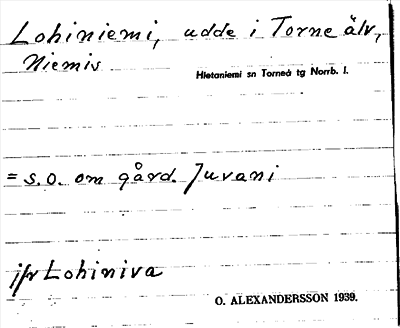 Lohiniemi, udde i Torne älv,
Niemis
Hietaniemi sn Torneå tg Norrb. l.
= s.o. om gård. Juvani
jfr Lohiniva
O. ALEXANDERSSON 1939.